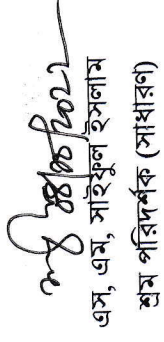 এস, এম, সাইফুল ইসলাম
শ্রম পরিদর্শক (সাধারণ)